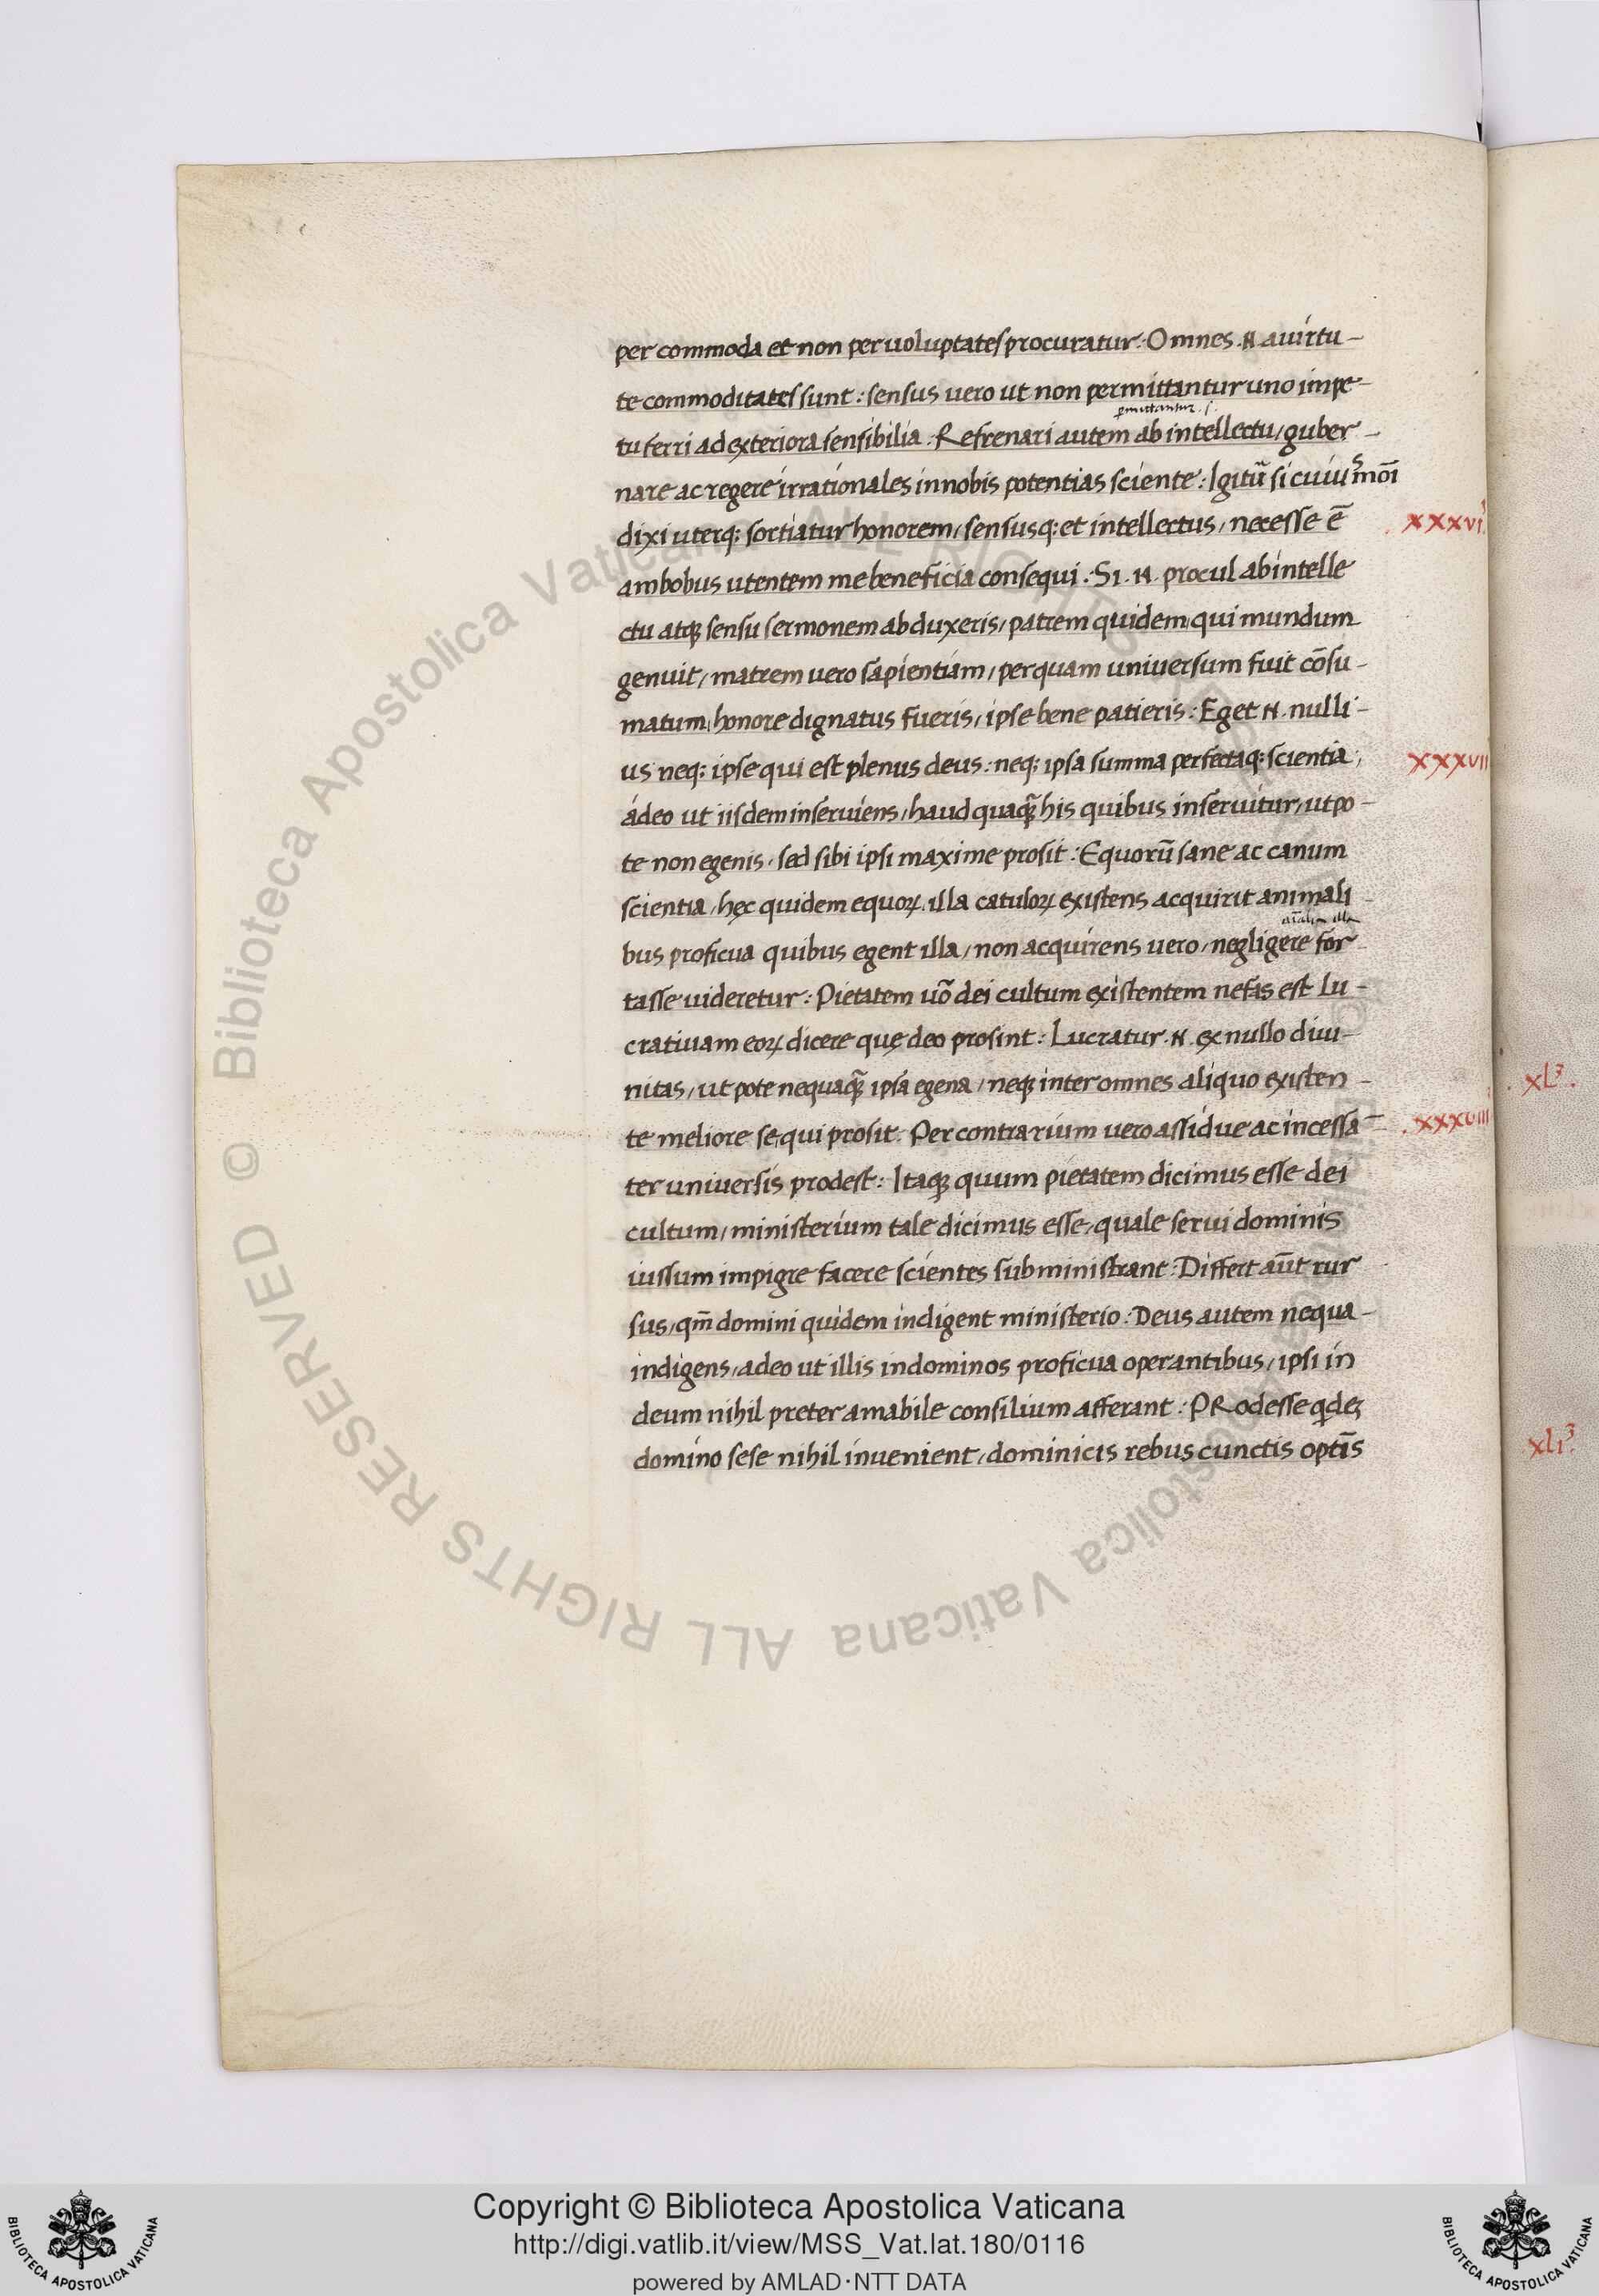 per commoda et non per uoluptates procuratur: Omnes .N. a uirtu-
te commoditates sunt: sensus uero ut non permittantur uno impe-
permittantur .s.
tu ferri ad exteriora sensibilia. Refrenari autem ab intellectu, guber-
nare ac regere irrationales in nobis potentias sciente: Igitur̃ si cuiusmõi
dixi uterq; sortiatur honorem, sensusq; et intellectus, necesse ẽ
xxxvi
ambobus utentem me beneficia consequi. Si .N. procul ab intelle
ctu atq; sensu sermonem abduxeris, patrem quidem qui mundum
genuit, matrem uero sapientiam, per quam uniuersum fuit cõsu-
matum, honore dignatus fueris, ipse bene patieris: Eget .N. nulli-
us neq; ipse qui est plenus deus: neq; ipsa summa perfectaq; scientia;
xxxvii
adeo ut iisdem inseruiens, haud quaq̃ his quibus inseruitur, utpo-
te non egenis, sed sibi ipsi maxime prosit: Equorũ sane ac canum
scientia, hęc quidem equoꝝ, illa catuloꝝ existens acquirit animali
aĩalia illa
bus proficua quibus egent illa, non acquirens uero, negligere for-
tasse uideretur: Pietatem uõ dei cultum existentem nefas est lu-
cratiuam eoꝝ dicere quę deo prosint: Lucratur .N. ex nullo diui-
nitas, ut pote nequaq̃ ipsa egena, neq; inter omnes aliquo existen-
xL
te meliore se, qui prosit. Per contrarium uero assidue ac incessã-
xxxviii
ter uniuersis prodest: Itaq; quum pietatem dicimus esse dei
cultum, ministerium tale dicimus esse, quale serui dominis
iussum impigre facere scientes subministrant: Differt aũt rur
sus, qm̃ domini quidem indigent ministerio: Deus autem nequa-
indigens, adeo ut illis in dominos proficua operantibus, ipsi in
deum nihil preter amabile consilium afferant: PRodesse qdeꝫ
domino sese nihil inuenient, dominicis rebus cunctis optĩs
xli
© Biblioteca Apostolica Vaticana ALL RIGHTS RESERVED
Copyright © Biblioteca Apostolica Vaticana
http://digi.vatlib.it/view/MSS_Vat.lat.180/0116
powered by AMLAD·NTT DATA
BIBLIOTECA APOSTOLICA VATICANA
BIBLIOTECA APOSTOLICA VATICANA